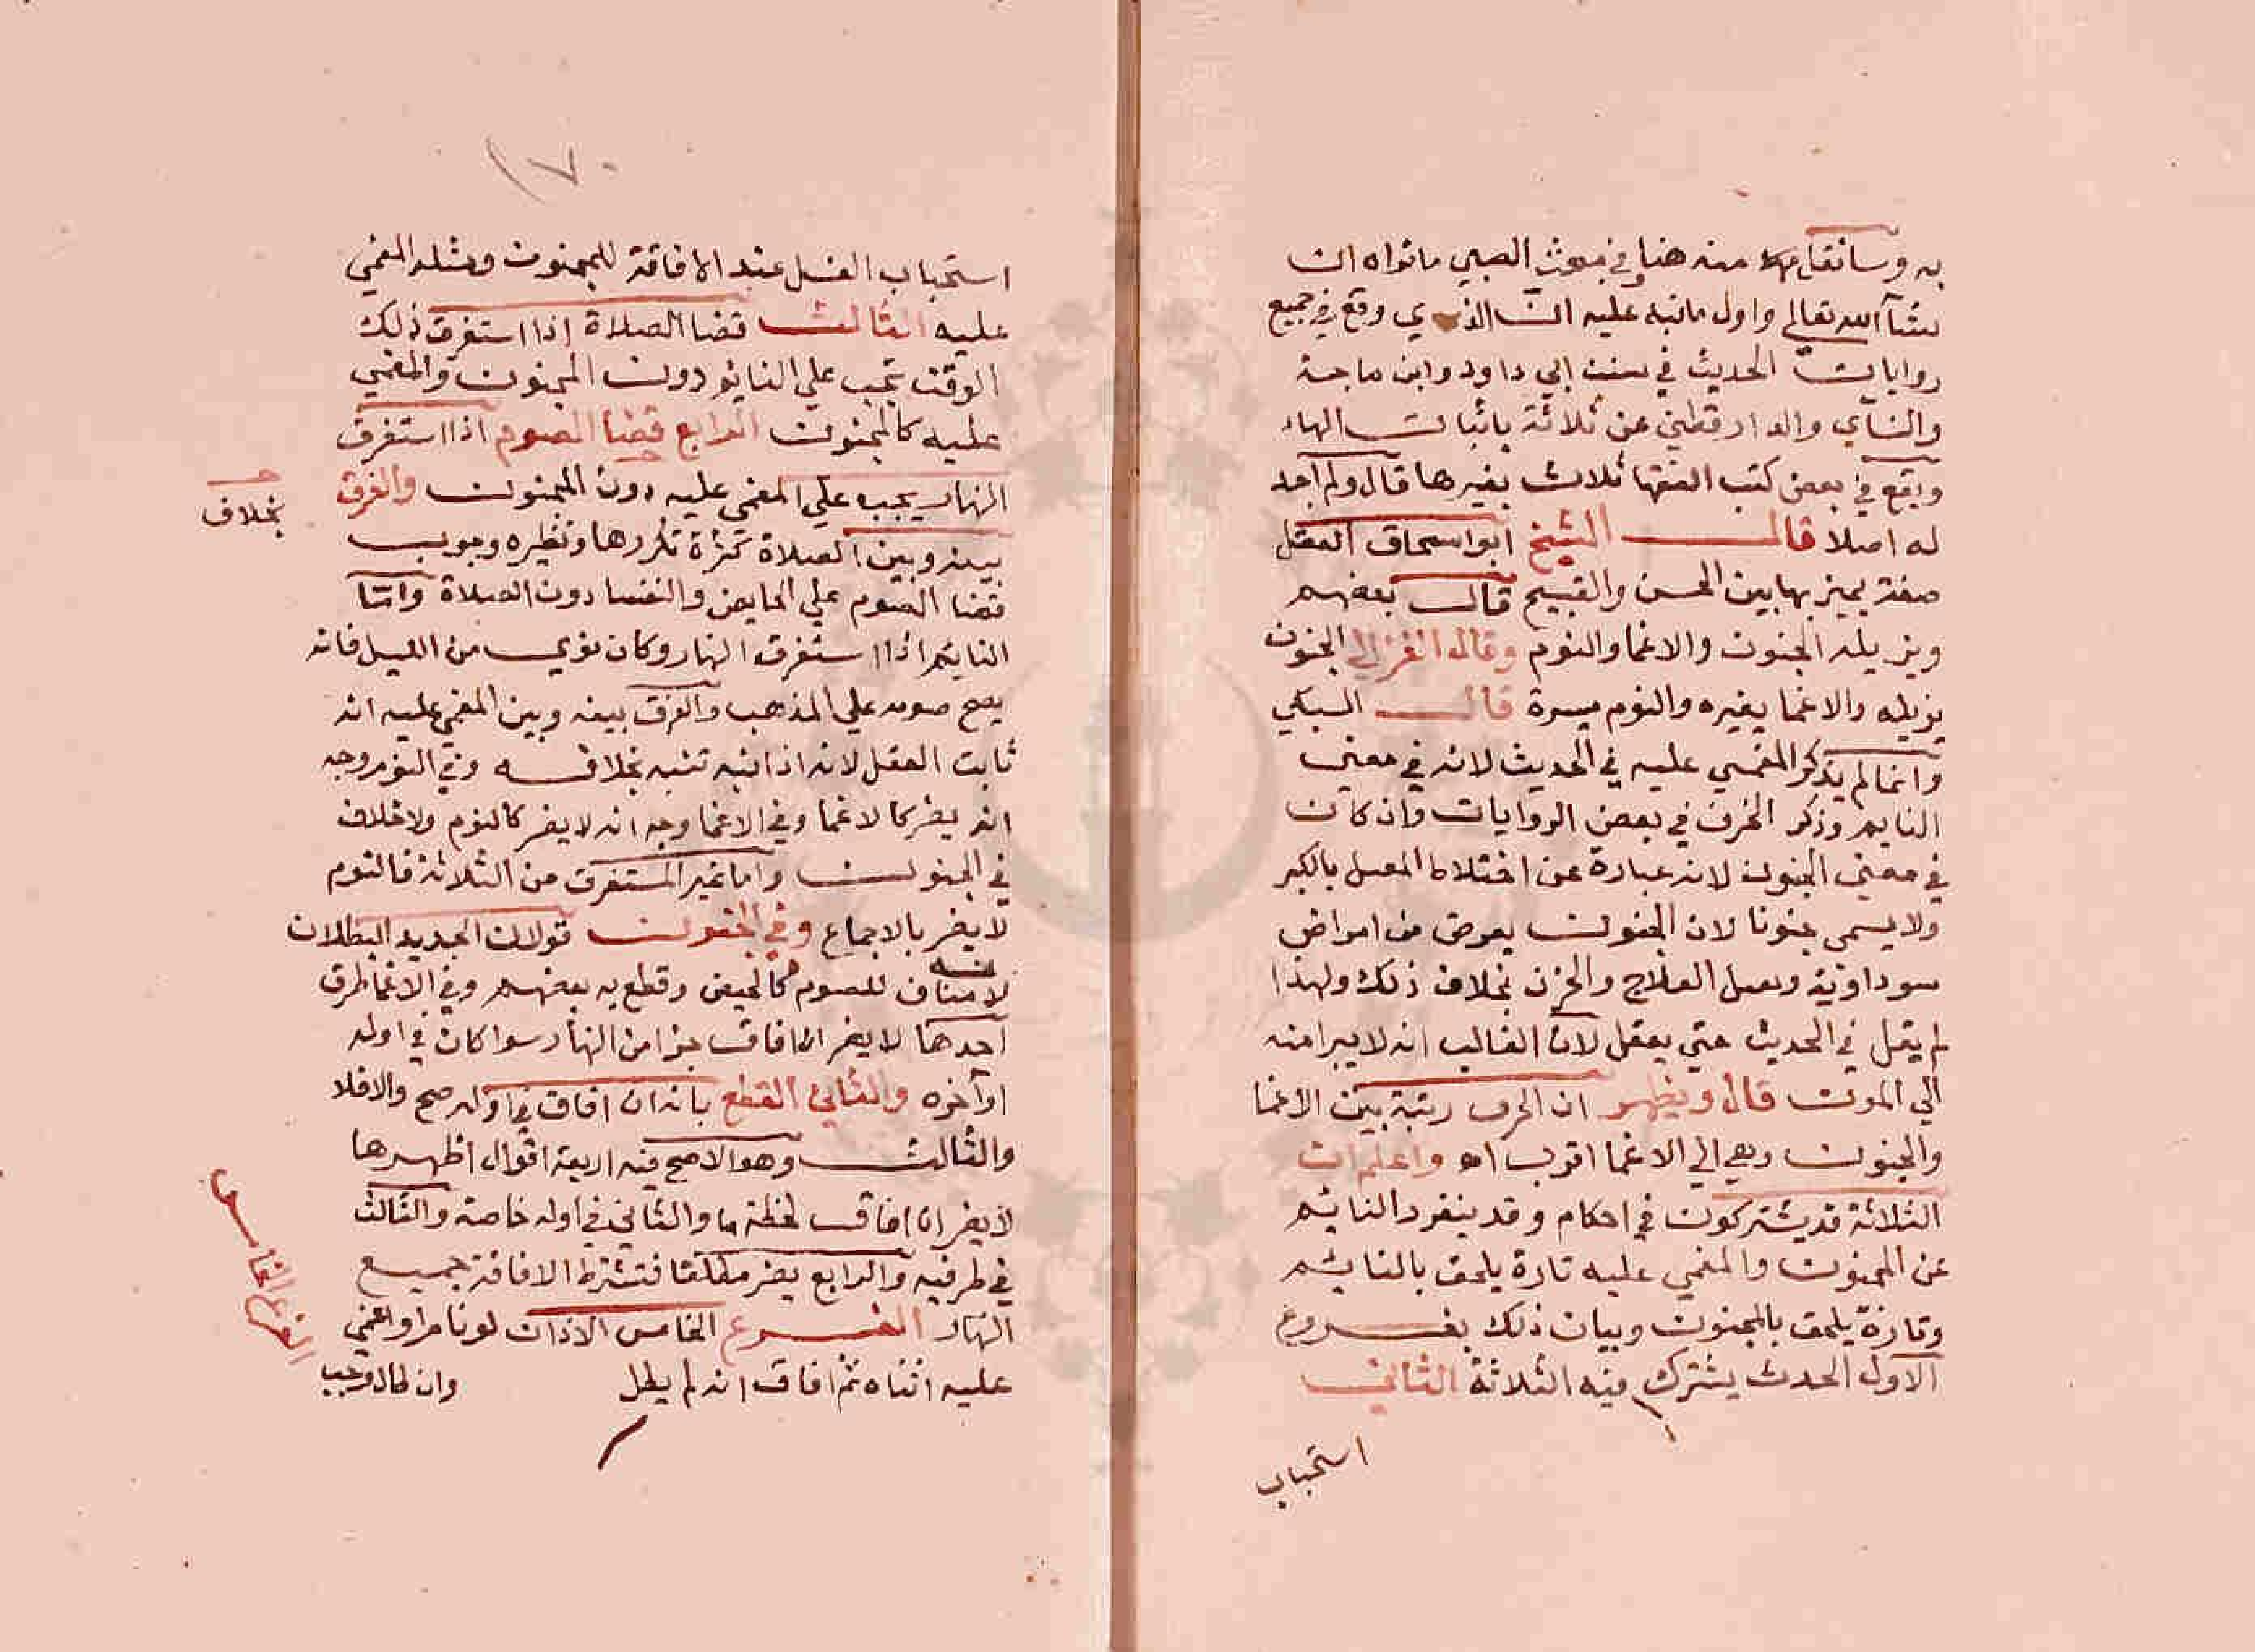 به وسانقل منه هنا وفي مبحث الصبي ما تراه ان
شآء الله تعالي واول ما نبه عليه ان الذي وقع في جميع
روايات الحديث في سنن ابي داود وابن ماجة
والنسآي والدارقطني عن ثلاثة باثبات الهاء
ويقع في بعض كتب الفقها ثلاث بغيرها قال ولم اجد
له اصلا قال الشيخ ابو اسحاق العقل
صفة يميز بها بين الحسن والقبيح قال بعضهم
ويزيله الجنون والاغما والنوم وقال الغزالي الجنون
يزيله والاغما يغيره والنوم يستره قال السبكي
وانما لم يذكر المغمي عليه في الحديث لانه في معني
النايم وذكر الخرف في بعض الروايات وان كان
في معني الجنون لانه عبارة عن اختلاط العقل بالكبر
ولا يسمي جنونا لان الجنون يعرض من امراض
سوداوية ويقبل العلاج والخرف بخلاف ذلك ولهذا
لم يقل في الحديث حتي يعقل لان الغالب انه لا يبرا منه
الي الموت قال ويظهر ان الخرف رتبة بين الاغما
والجنون وهي الي الاغما اقرب اه واعلم ان
الثلاثة قد يشتركون في احكام وقد ينفرد النايم
عن المجنون والمغمي عليه تارة يلحق بالنايم
وتارة يلحق بالمجنون وبيان ذلك بفروع
الاول الحدث يشترك فيه الثلاثة الثاني
استحباب
١٧٠
استحباب الغسل عند الافاقة للمجنون ومثله المغمي
عليه الثالث قضا الصلاة اذا استغرق ذلك
الوقت تجب علي النايم دون المجنون والمغمي
عليه كالمجنون الرابع قضا الصوم اذا استغرق
النهار يجب علي المغمي عليه دون المجنون والفرق
بخلاف
بينه وبين الصلاة كثرة تكررها ونظيره وجوب
قضا الصوم علي الحايض والنفسا دون الصلاة واما
النايم اذا استغرق النهار وكان نوي من الليل فانه
يصح صومه علي المذهب والفرق بينه وبين المغمي عليه انه
ثابت العقل لانه اذا نبه تنبه بخلافه وفي النوم وجه
انه يضر كالاغما وفي الاغما وجه انه لا يضر كالنوم ولا خلاف
في الجنون واما غير المستغرق من الثلاثة فالنوم
لا يضر بالاجماع وفي الجنون قولان الجديد البطلان
لانه مناف للصوم كالحيض وقطع به بعضهم وفي الاغما طرق
احدها لا يضر اذا افاق جزا من النهار سوا كان في اوله
او آخره والثاني القطع بانه ان افاق في اوله صح والا فلا
والثالث وهو الاصح فيه اربعة اقوال اظهرها
لا يضر اذا افاق لحظة ما والثاني في اوله خاصة والثالث
في طرفيه والرابع يضر مطلقا فتشترط الافاقة جميع
النهار الفرع الخامس الاذان لو نام او اغمي
الفرع الخامس
عليه اثناه ثم افاق انه لم يطل وان طال وجب